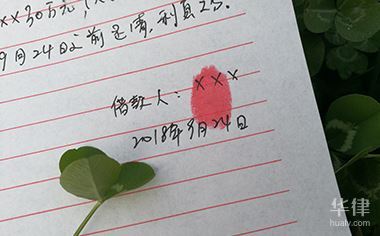 ××30万元
9月24日之前还清,利息2分.
借款人: ×××
2018年9月24日
华律
hualv.com